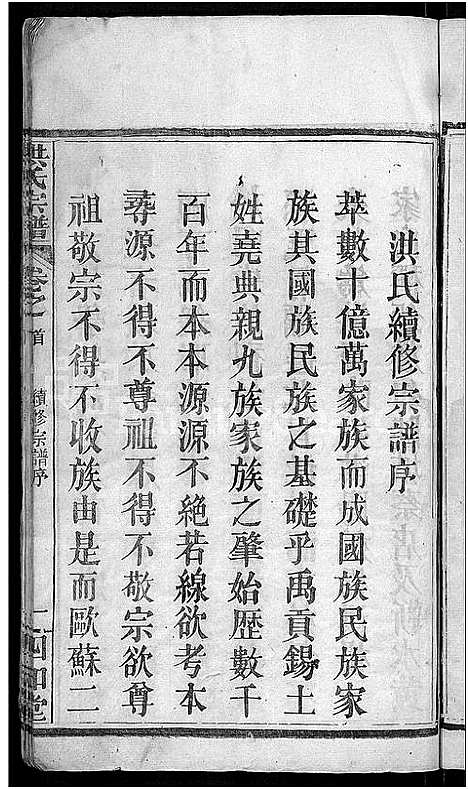 洪氏續修宗譜序
萃數十億萬家族而成國族民族家
族其國族民族之基礎乎禹貢錫土
姓堯典親九族家族之肇始歷數千
百年而本本源源不絕若線欲考本
尋源不得不尊祖不得不敬宗欲尊
祖敬宗不得不收族由是而歐蘇二
洪氏宗譜
卷之首
續修宗譜序
一